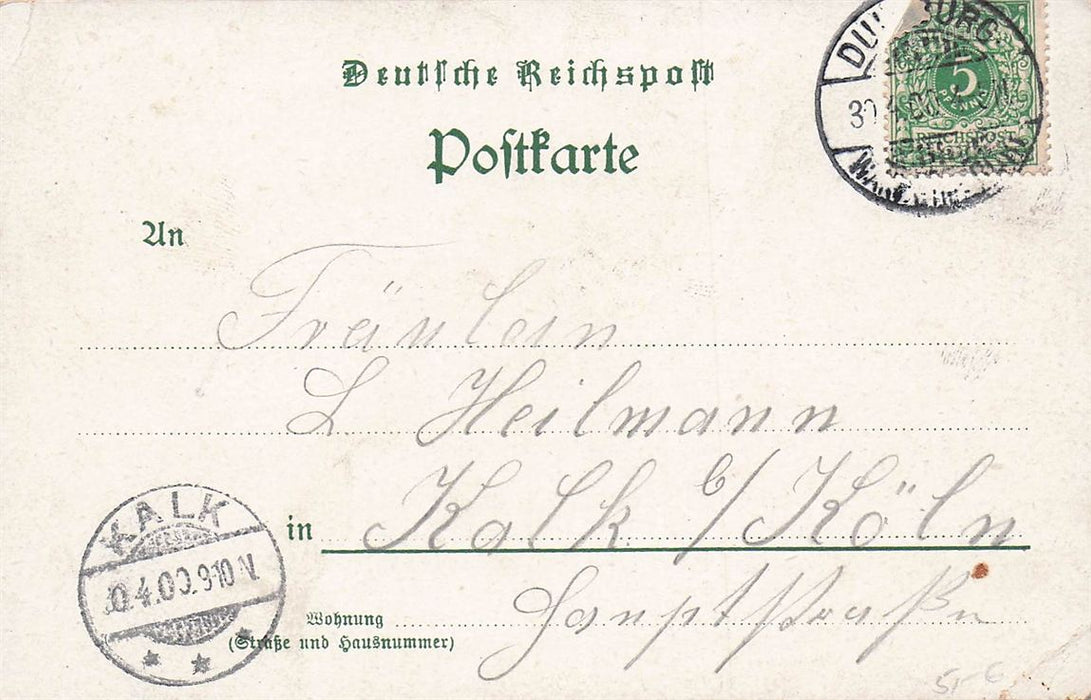 Deutsche Reichspost
Postkarte
DUISBURG
30.4.00.
5
PFENNIG
REICHSPOST
An
Fräulein
L Heilmann
in Kalk b/ Köln
Wohnung
(Straße und Hausnummer)
Hauptstraße
KALK
30.4.00.9-10 V.